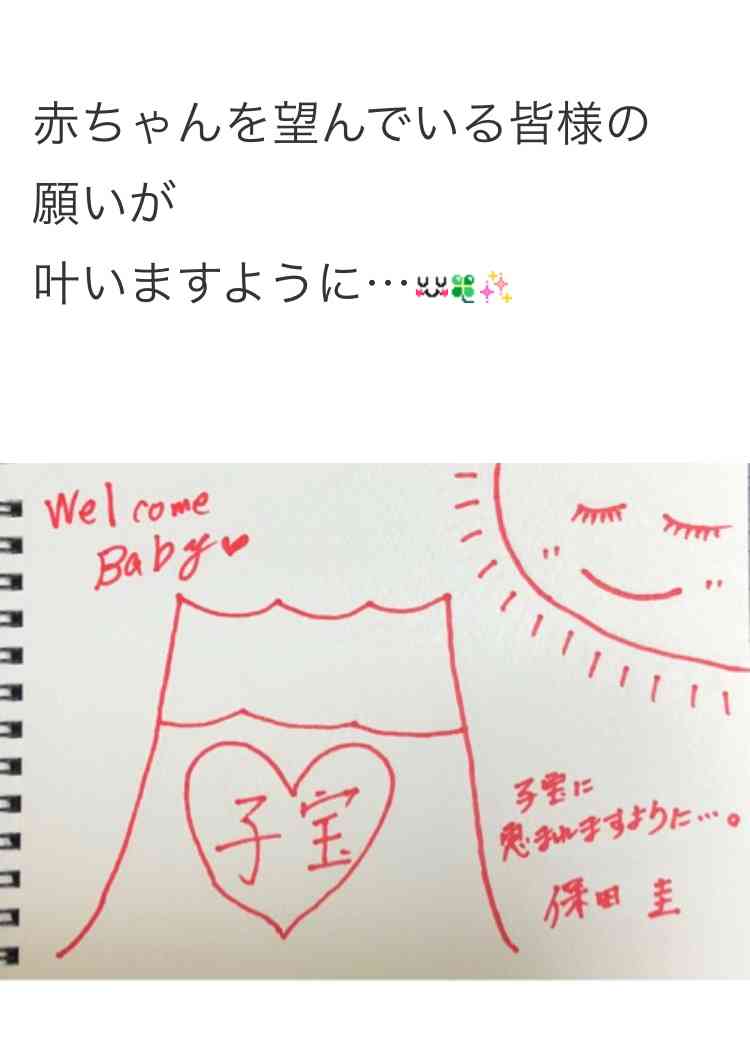 赤ちゃんを望んでいる皆様の
願いが
叶いますように…🍀✨
Welcome
Baby♥
子宝
子宝に
恵まれますように…。
保田 圭